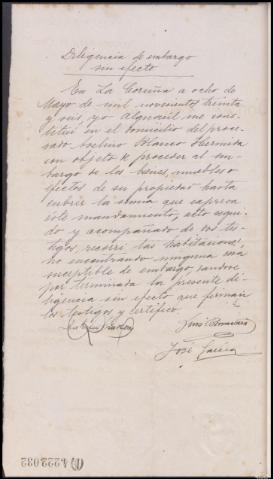 Diligencia de embargo
sin efecto
En La Coruña a ocho de
Mayo de mil novecientos treinta
y seis, yo Alguacil me cons-
tituí en el domicilio del proce-
sado Avelino Blanco Hermida
con objeto de proceder al em-
bargo de los bienes, muebles o
efectos de su propiedad hasta
cubrir la suma que expresa
este mandamiento, acto segui-
do y acompañado de los tes-
tigos, recorrí las habitaciones,
no encontrando ninguna cosa
susceptible de embargo, dandose
por terminada la presente di-
ligencia sin efecto que firman
los testigos y certifico.
José García
4222032